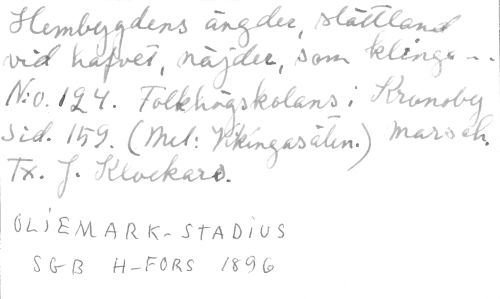 Hembygdens ängder, slättland
vid hafvet, näjder, som klinga...
N:o. 124. Folkhögskolans i Kronoby
Sid. 159. (Mel: Vikingasäten.) marsch.
Tx. J. Klockars.
OLIEMARK-STADIUS
SGB H-FORS 1896